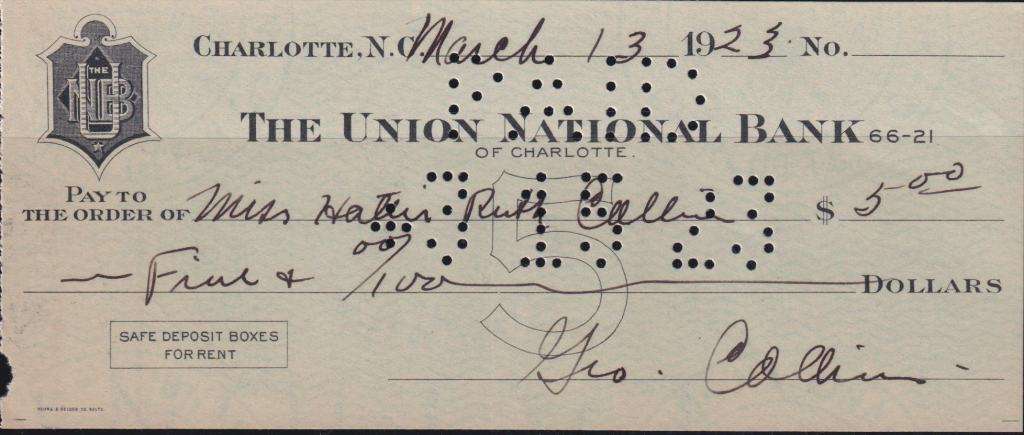 THE
NB
U
CHARLOTTE, N.C. March 13 1923 No.
PAID
THE UNION NATIONAL BANK 66-21
OF CHARLOTTE.
PAY TO
THE ORDER OF Miss Hattie Ruth Collins $ 5 00
3 15 23
5
Five & 00/100 DOLLARS
SAFE DEPOSIT BOXES
FOR RENT
Geo. Collins.